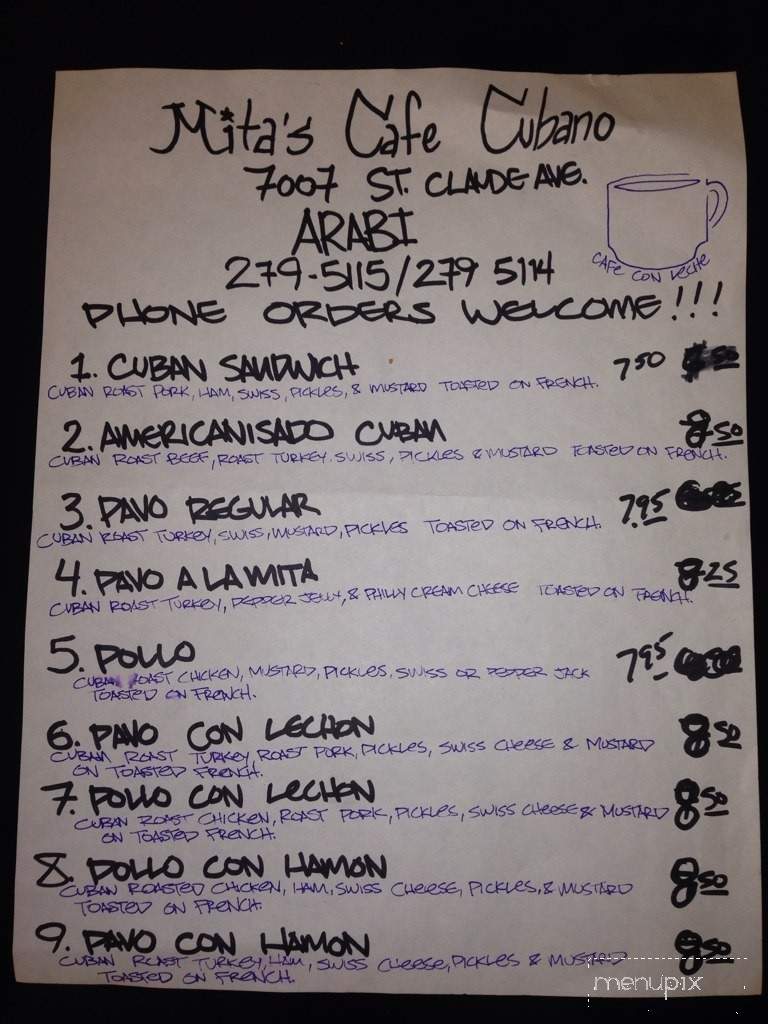 Mita's Cafe Cubano
7007 ST. CLAUDE AVE.
ARABI
279-5115/279 5114
CAFE CON LECHE
PHONE ORDERS WELCOME!!!
1. CUBAN SANDWICH 7 50
CUBAN ROAST PORK, HAM, SWISS, PICKLES, & MUSTARD TOASTED ON FRENCH.
2. AMERICANISADO CUBAN 8 50
CUBAN ROAST BEEF, ROAST TURKEY. SWISS, PICKLES & MUSTARD TOASTED ON FRENCH.
3. PAVO REGULAR 7.95
CUBAN ROAST TURKEY, SWISS, MUSTARD, PICKLES TOASTED ON FRENCH.
4. PAVO A LA MITA 8 25
CUBAN ROAST TURKEY, PEPPER JELLY, & PHILLY CREAM CHEESE TOASTED ON FRENCH.
5. POLLO 7 95
CUBAN ROAST CHICKEN, MUSTARD, PICKLES, SWISS OR PEPPER JACK
TOASTED ON FRENCH.
6. PAVO CON LECHON 8 50
CUBAN ROAST TURKEY, ROAST PORK, PICKLES, SWISS CHEESE & MUSTARD
ON TOASTED FRENCH.
7. POLLO CON LECHON 8 50
CUBAN ROAST CHICKEN, ROAST PORK, PICKLES, SWISS CHEESE & MUSTARD
ON TOASTED FRENCH.
8. POLLO CON HAMON 8 50
CUBAN ROASTED CHICKEN, HAM, SWISS CHEESE, PICKLES, & MUSTARD
TOASTED ON FRENCH.
9. PAVO CON HAMON 8 50
CUBAN ROAST TURKEY, HAM, SWISS CHEESE, PICKLES & MUSTARD
TOASTED ON FRENCH.
menupix